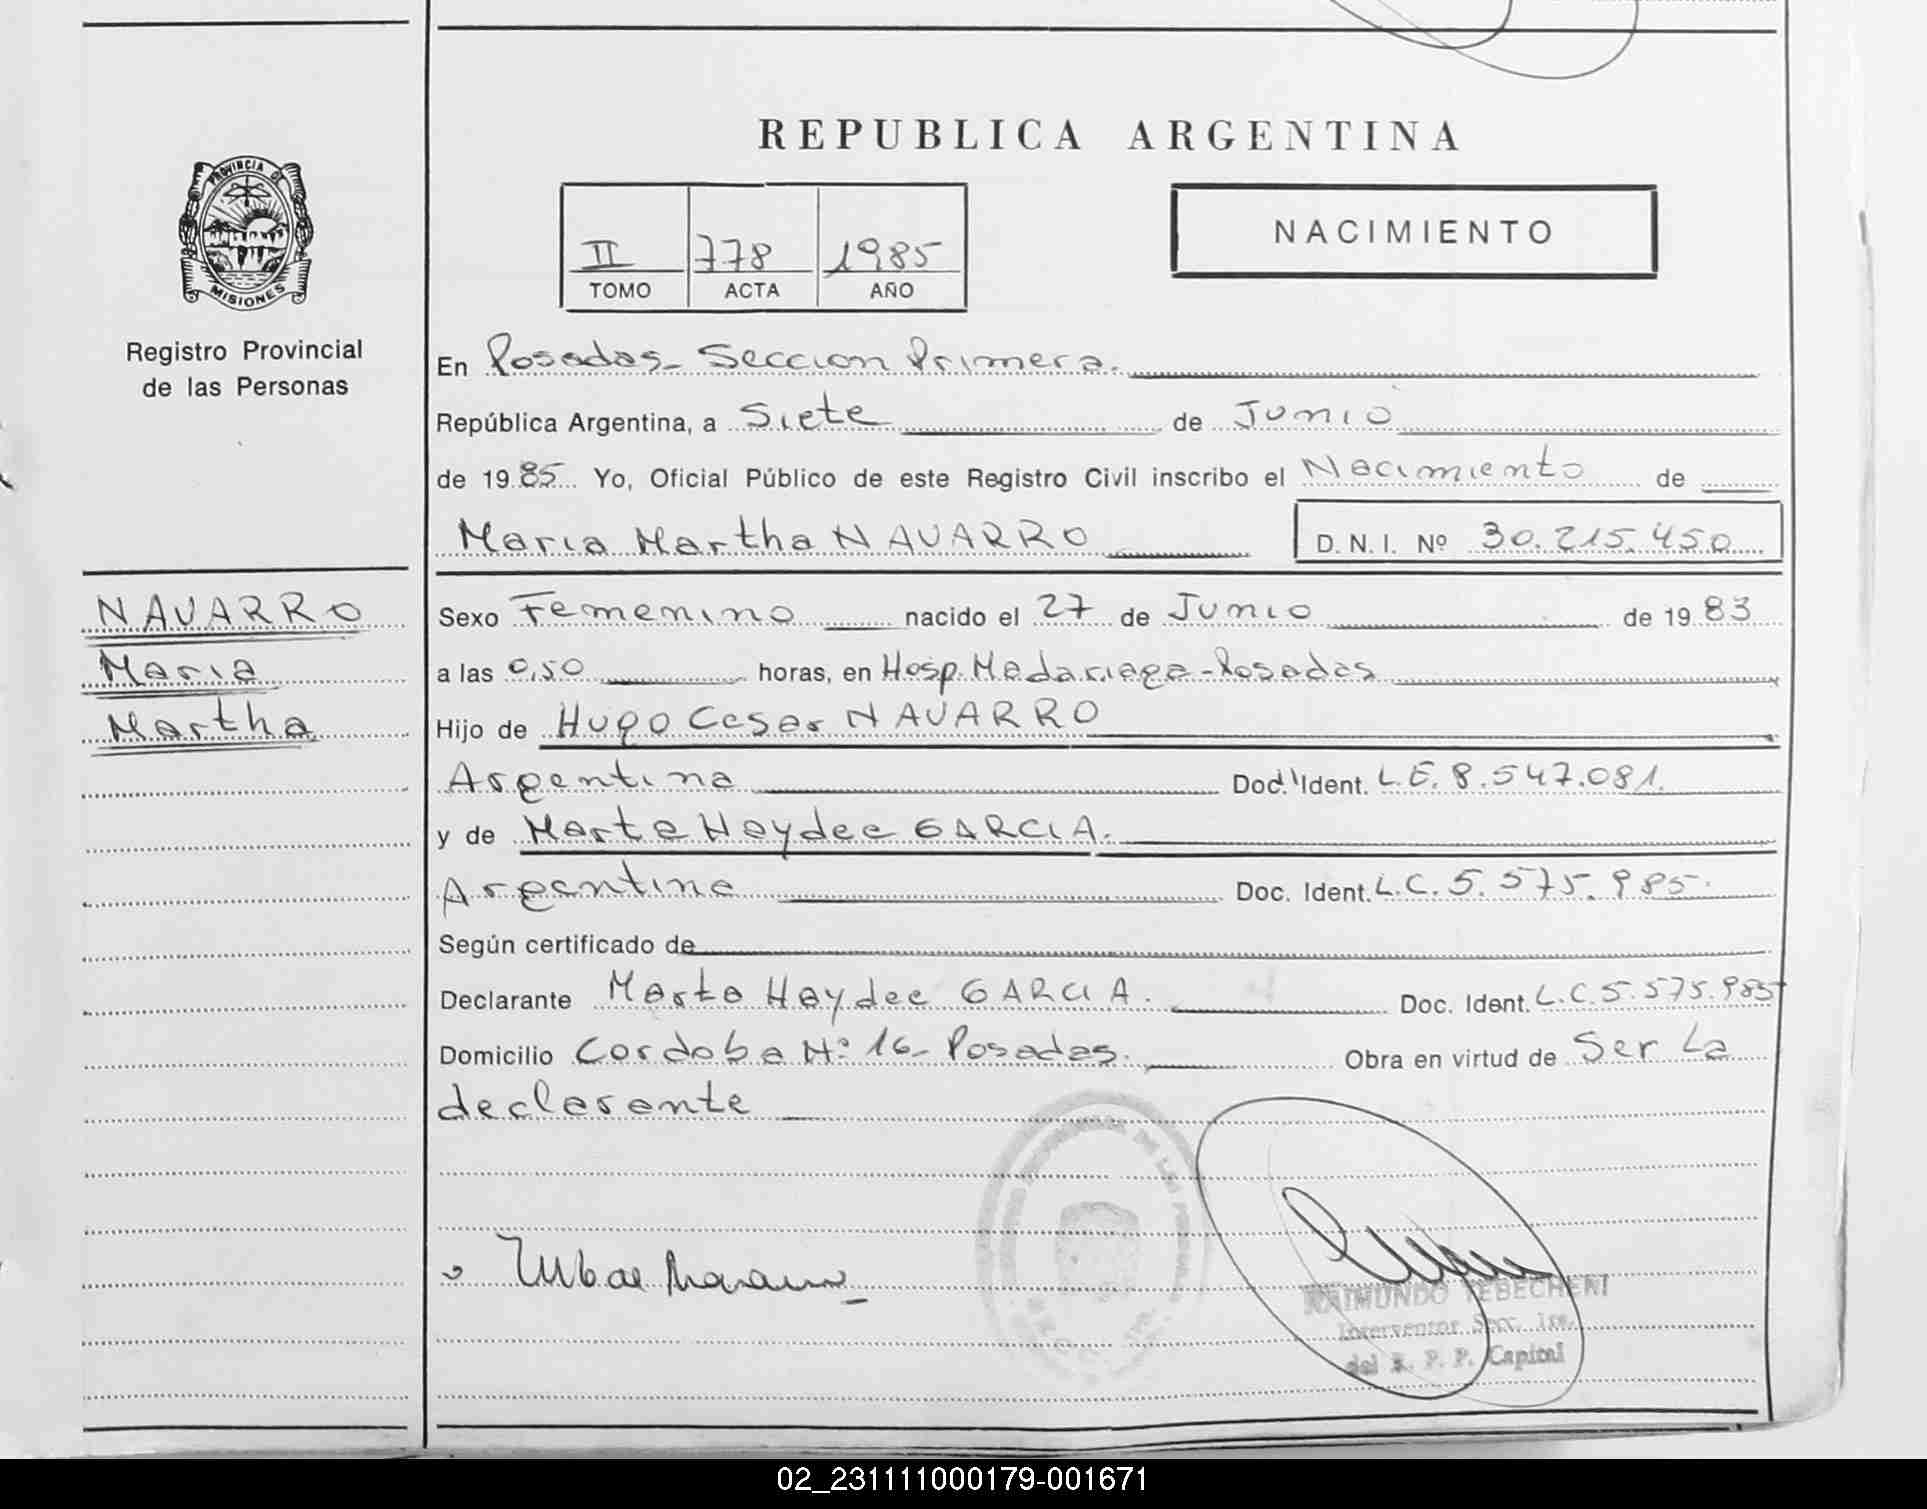 REPUBLICA ARGENTINA
PROVINCIA DE
MISIONES
Registro Provincial
de las Personas
II 778 1985
TOMO ACTA AÑO
NACIMIENTO
En Posadas- Seccion Primera.
República Argentina, a Siete de Junio
de 1985 Yo, Oficial Público de este Registro Civil inscribo el Nacimiento de
Maria Martha NAVARRO D.N.I. Nº 30.215.450
NAVARRO
Maria
Martha
Sexo Femenino nacido el 27 de Junio de 1983
a las 0,50 horas, en Hosp. Madariaga-Posadas
Hijo de Hugo Cesar NAVARRO
Argentina Doc. Ident. L.E. 8.547.081.
y de Marta Haydee GARCIA.
Argentina Doc. Ident. L.C. 5.575.985.
Según certificado de
Declarante Marta Haydee GARCIA. Doc. Ident. L.C. 5.575.985
Domicilio Cordoba Nº 16- Posadas. Obra en virtud de Ser La
declarante
RAIMUNDO TEBECHERI
Interventor Secc. 1ra.
del R. P. P. Capital
02_231111000179-001671